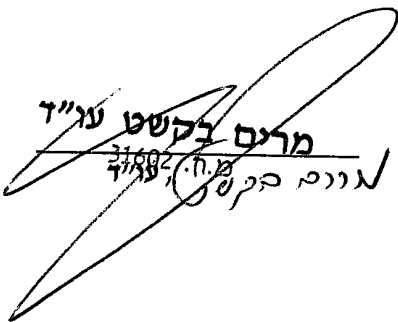 מרים בקשט עו"ד
מ.ח. 31602
מרים בקשט, עו"ד